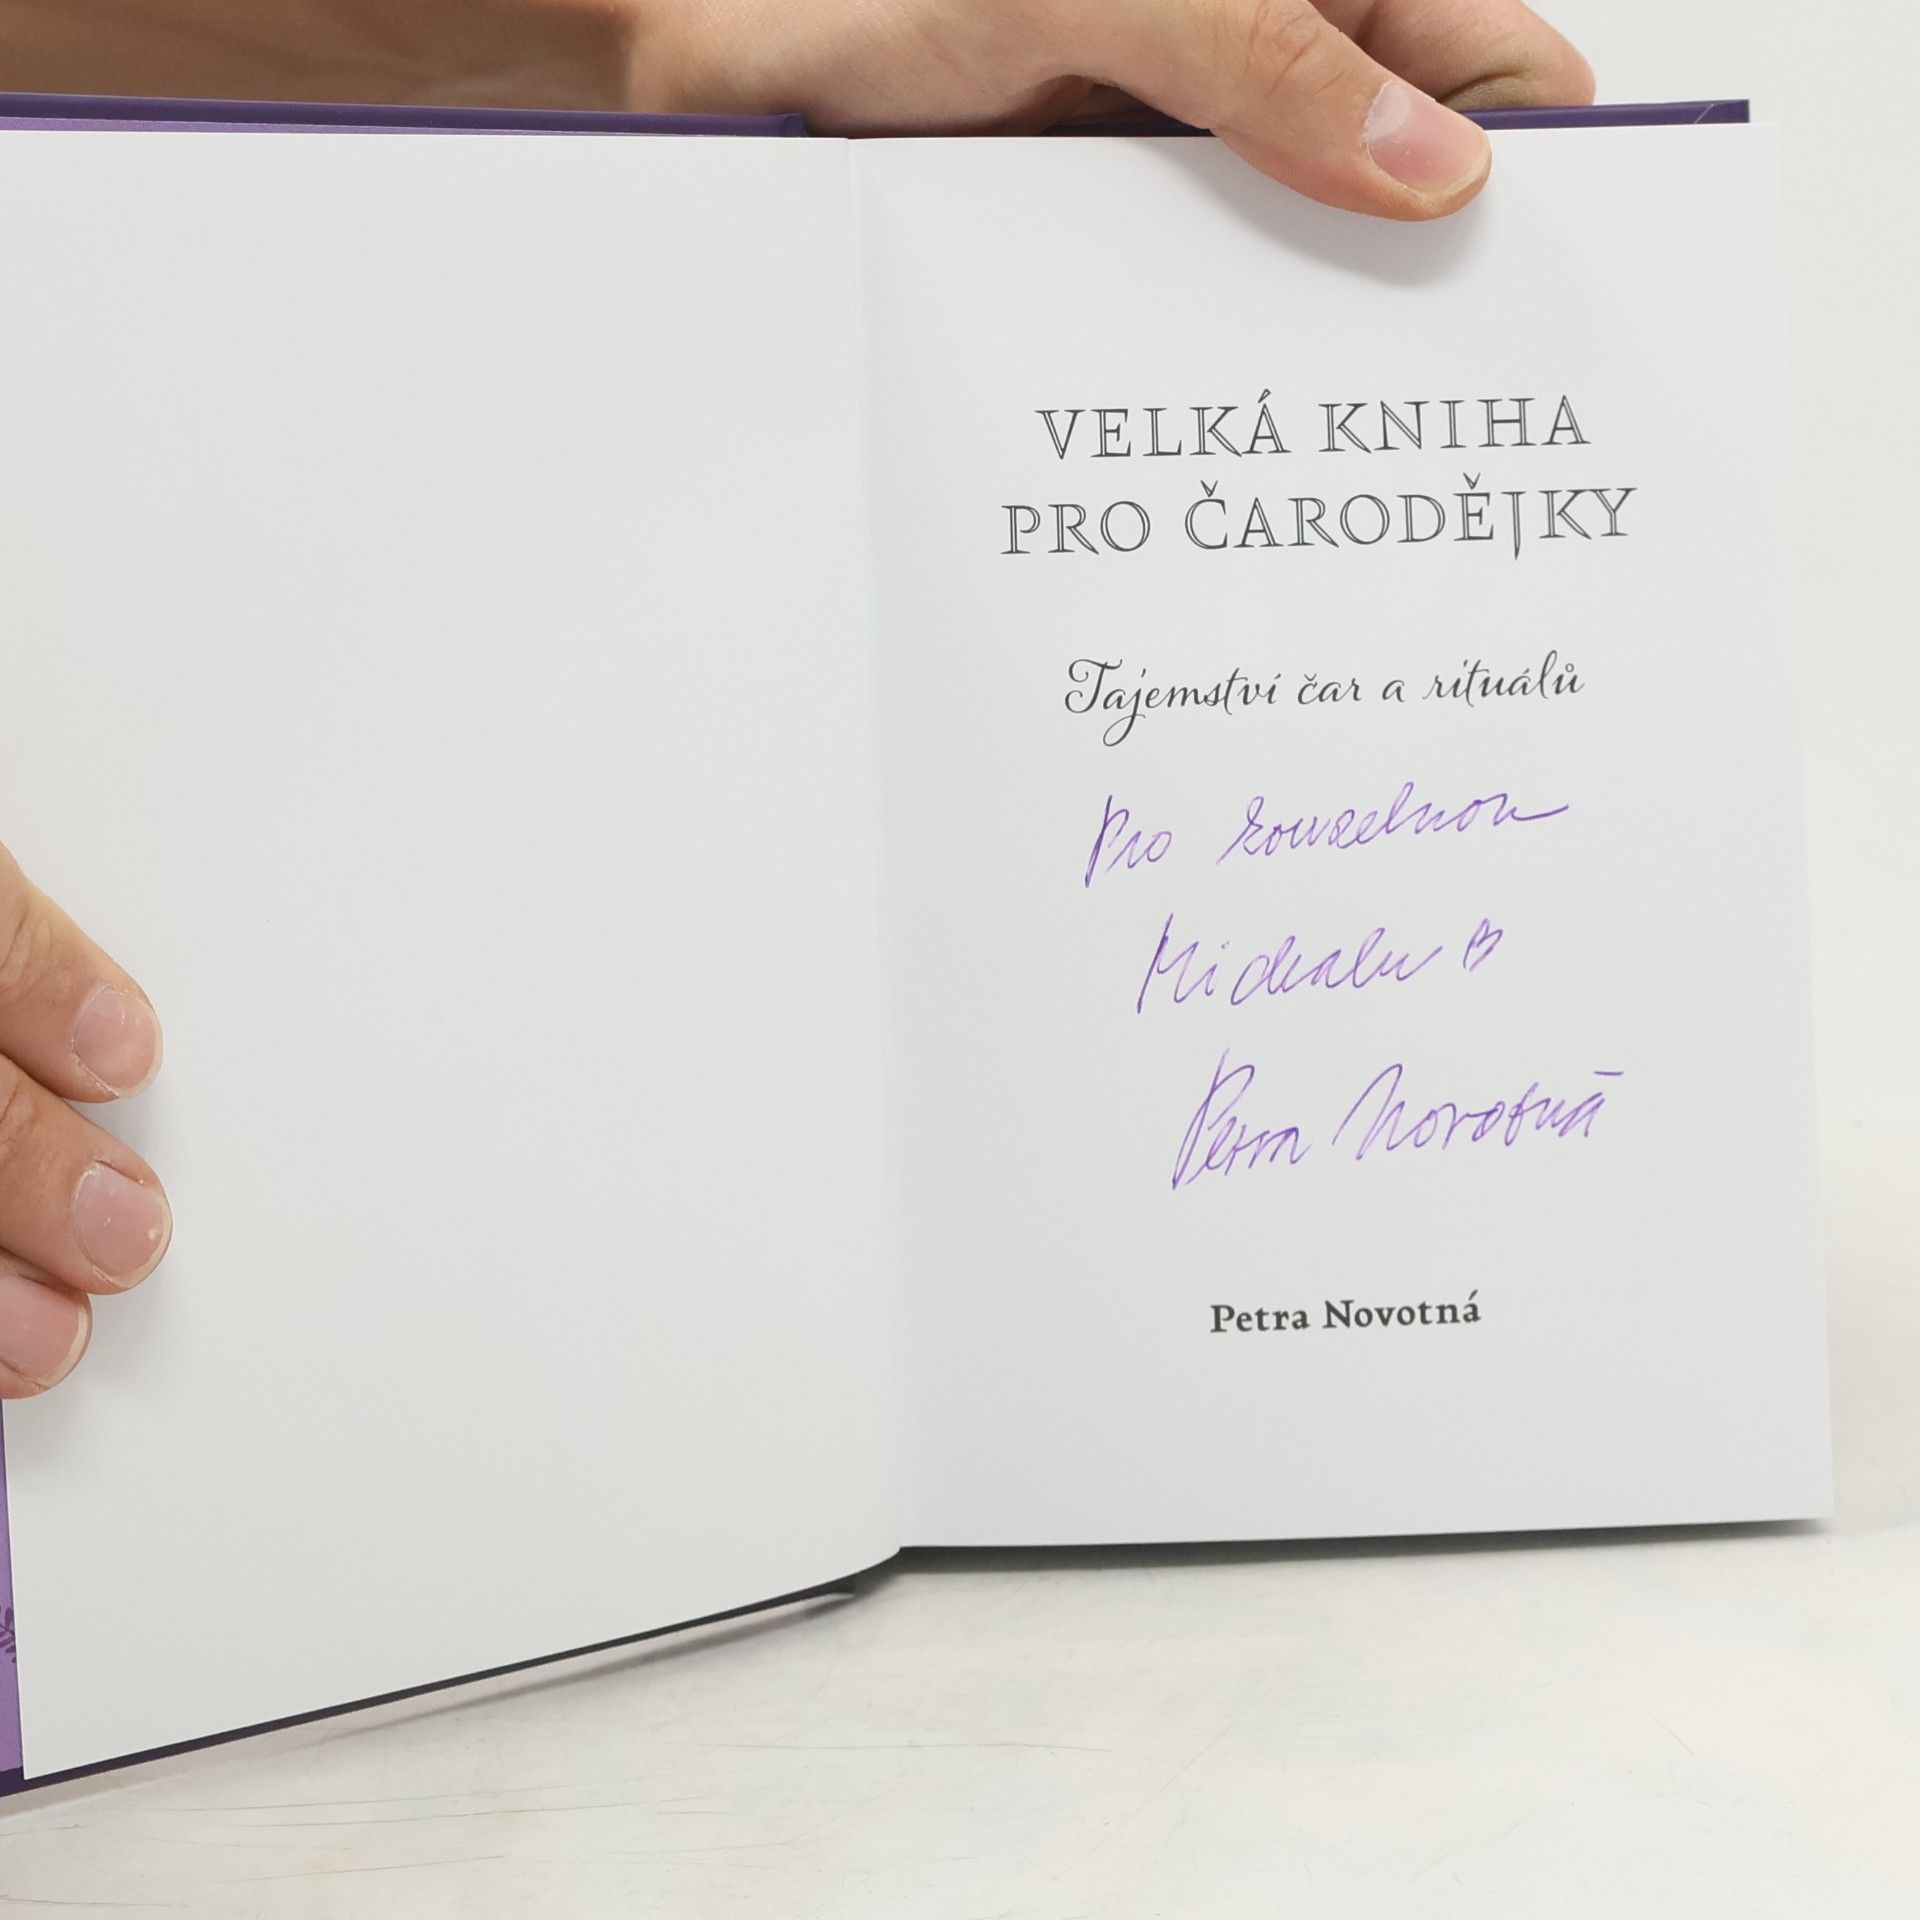 VELKÁ KNIHA
PRO ČARODĚJKY
Tajemství čar a rituálů
Pro kouzelnou
Michalu
Petra Novotná
Petra Novotná